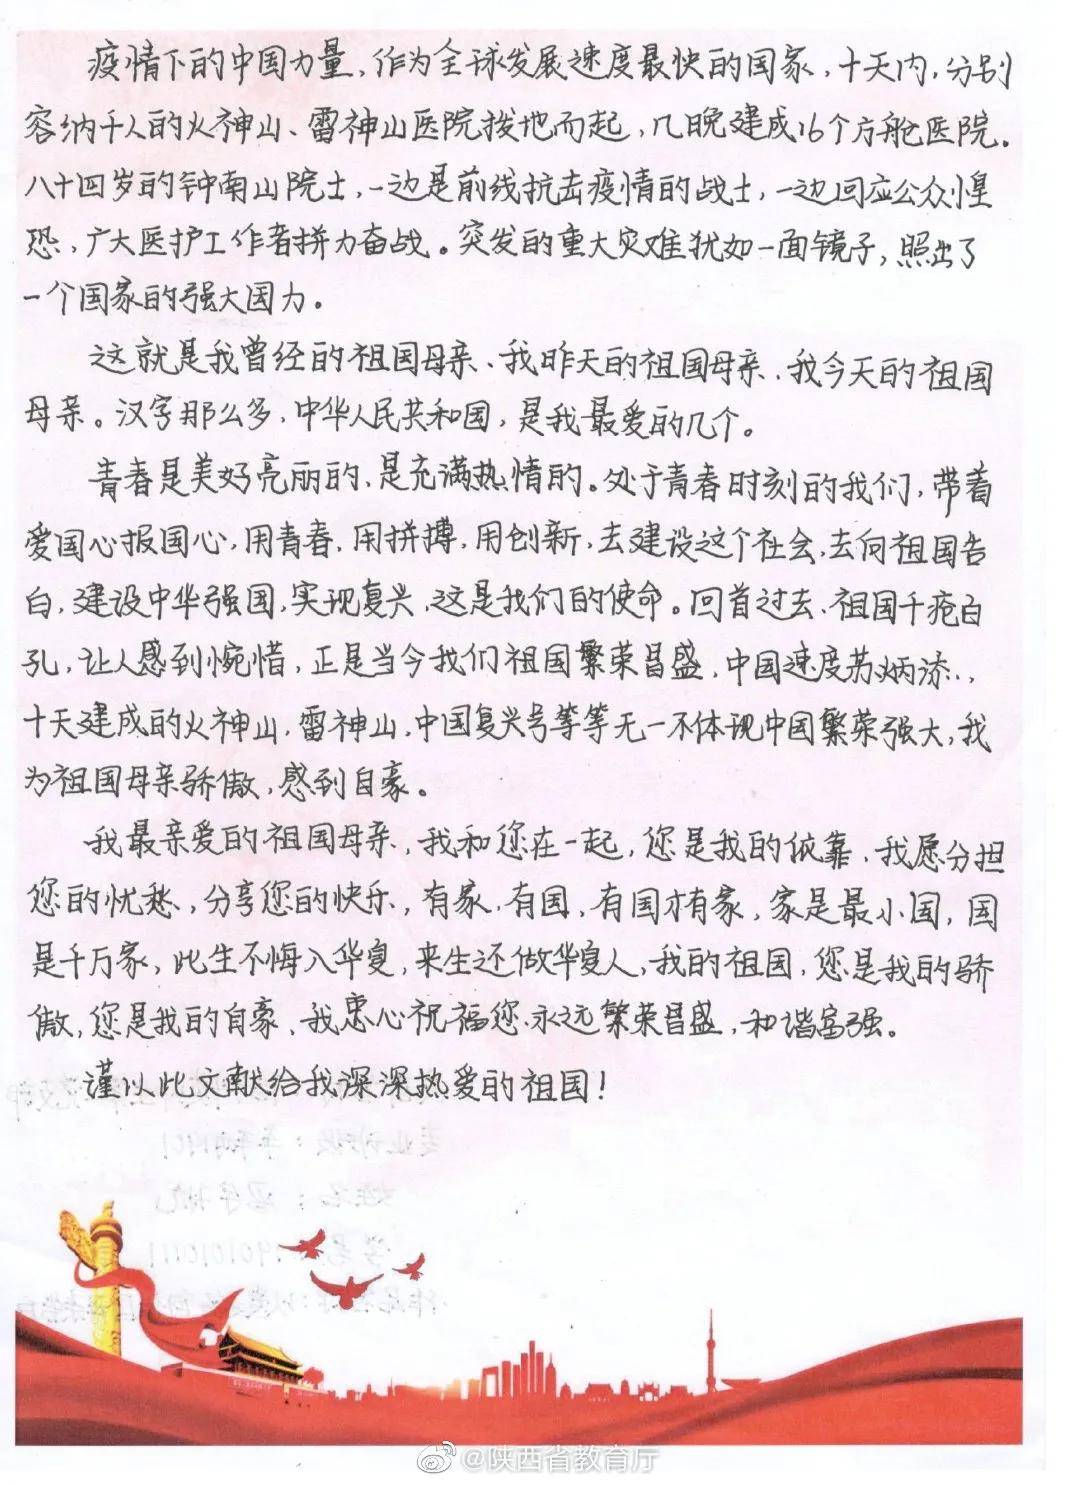 疫情下的中国力量，作为全球发展速度最快的国家，十天内，分别
容纳千人的火神山、雷神山医院拨地而起，几晚建成16个方舱医院。
八十四岁的钟南山院士，一边是前线抗击疫情的战士，一边回应公众惶
恐，广大医护工作者拼力奋战。突发的重大灾难犹如一面镜子，照出了
一个国家的强大国力。
这就是我曾经的祖国母亲、我昨天的祖国母亲、我今天的祖国
母亲。汉字那么多，中华人民共和国，是我最爱的几个。
青春是美好亮丽的，是充满热情的。处于青春时刻的我们，带着
爱国心报国心，用青春，用拼搏，用创新，去建设这个社会，去向祖国告
白，建设中华强国，实现复兴，这是我们的使命。回首过去，祖国千疮白
孔，让人感到惋惜，正是当今我们祖国繁荣昌盛，中国速度苏炳添，
十天建成的火神山，雷神山，中国复兴号等等无一不体现中国繁荣强大，我
为祖国母亲骄傲，感到自豪。
我最亲爱的祖国母亲，我和您在一起，您是我的依靠，我愿分担
您的忧愁，分享您的快乐，有家，有国，有国才有家，家是最小国，国
是千万家，此生不悔入华夏，来生还做华夏人，我的祖国，您是我的骄
傲，您是我的自豪，我忠心祝福您，永远繁荣昌盛，和谐富强。
谨以此文献给我深深热爱的祖国！
@陕西省教育厅